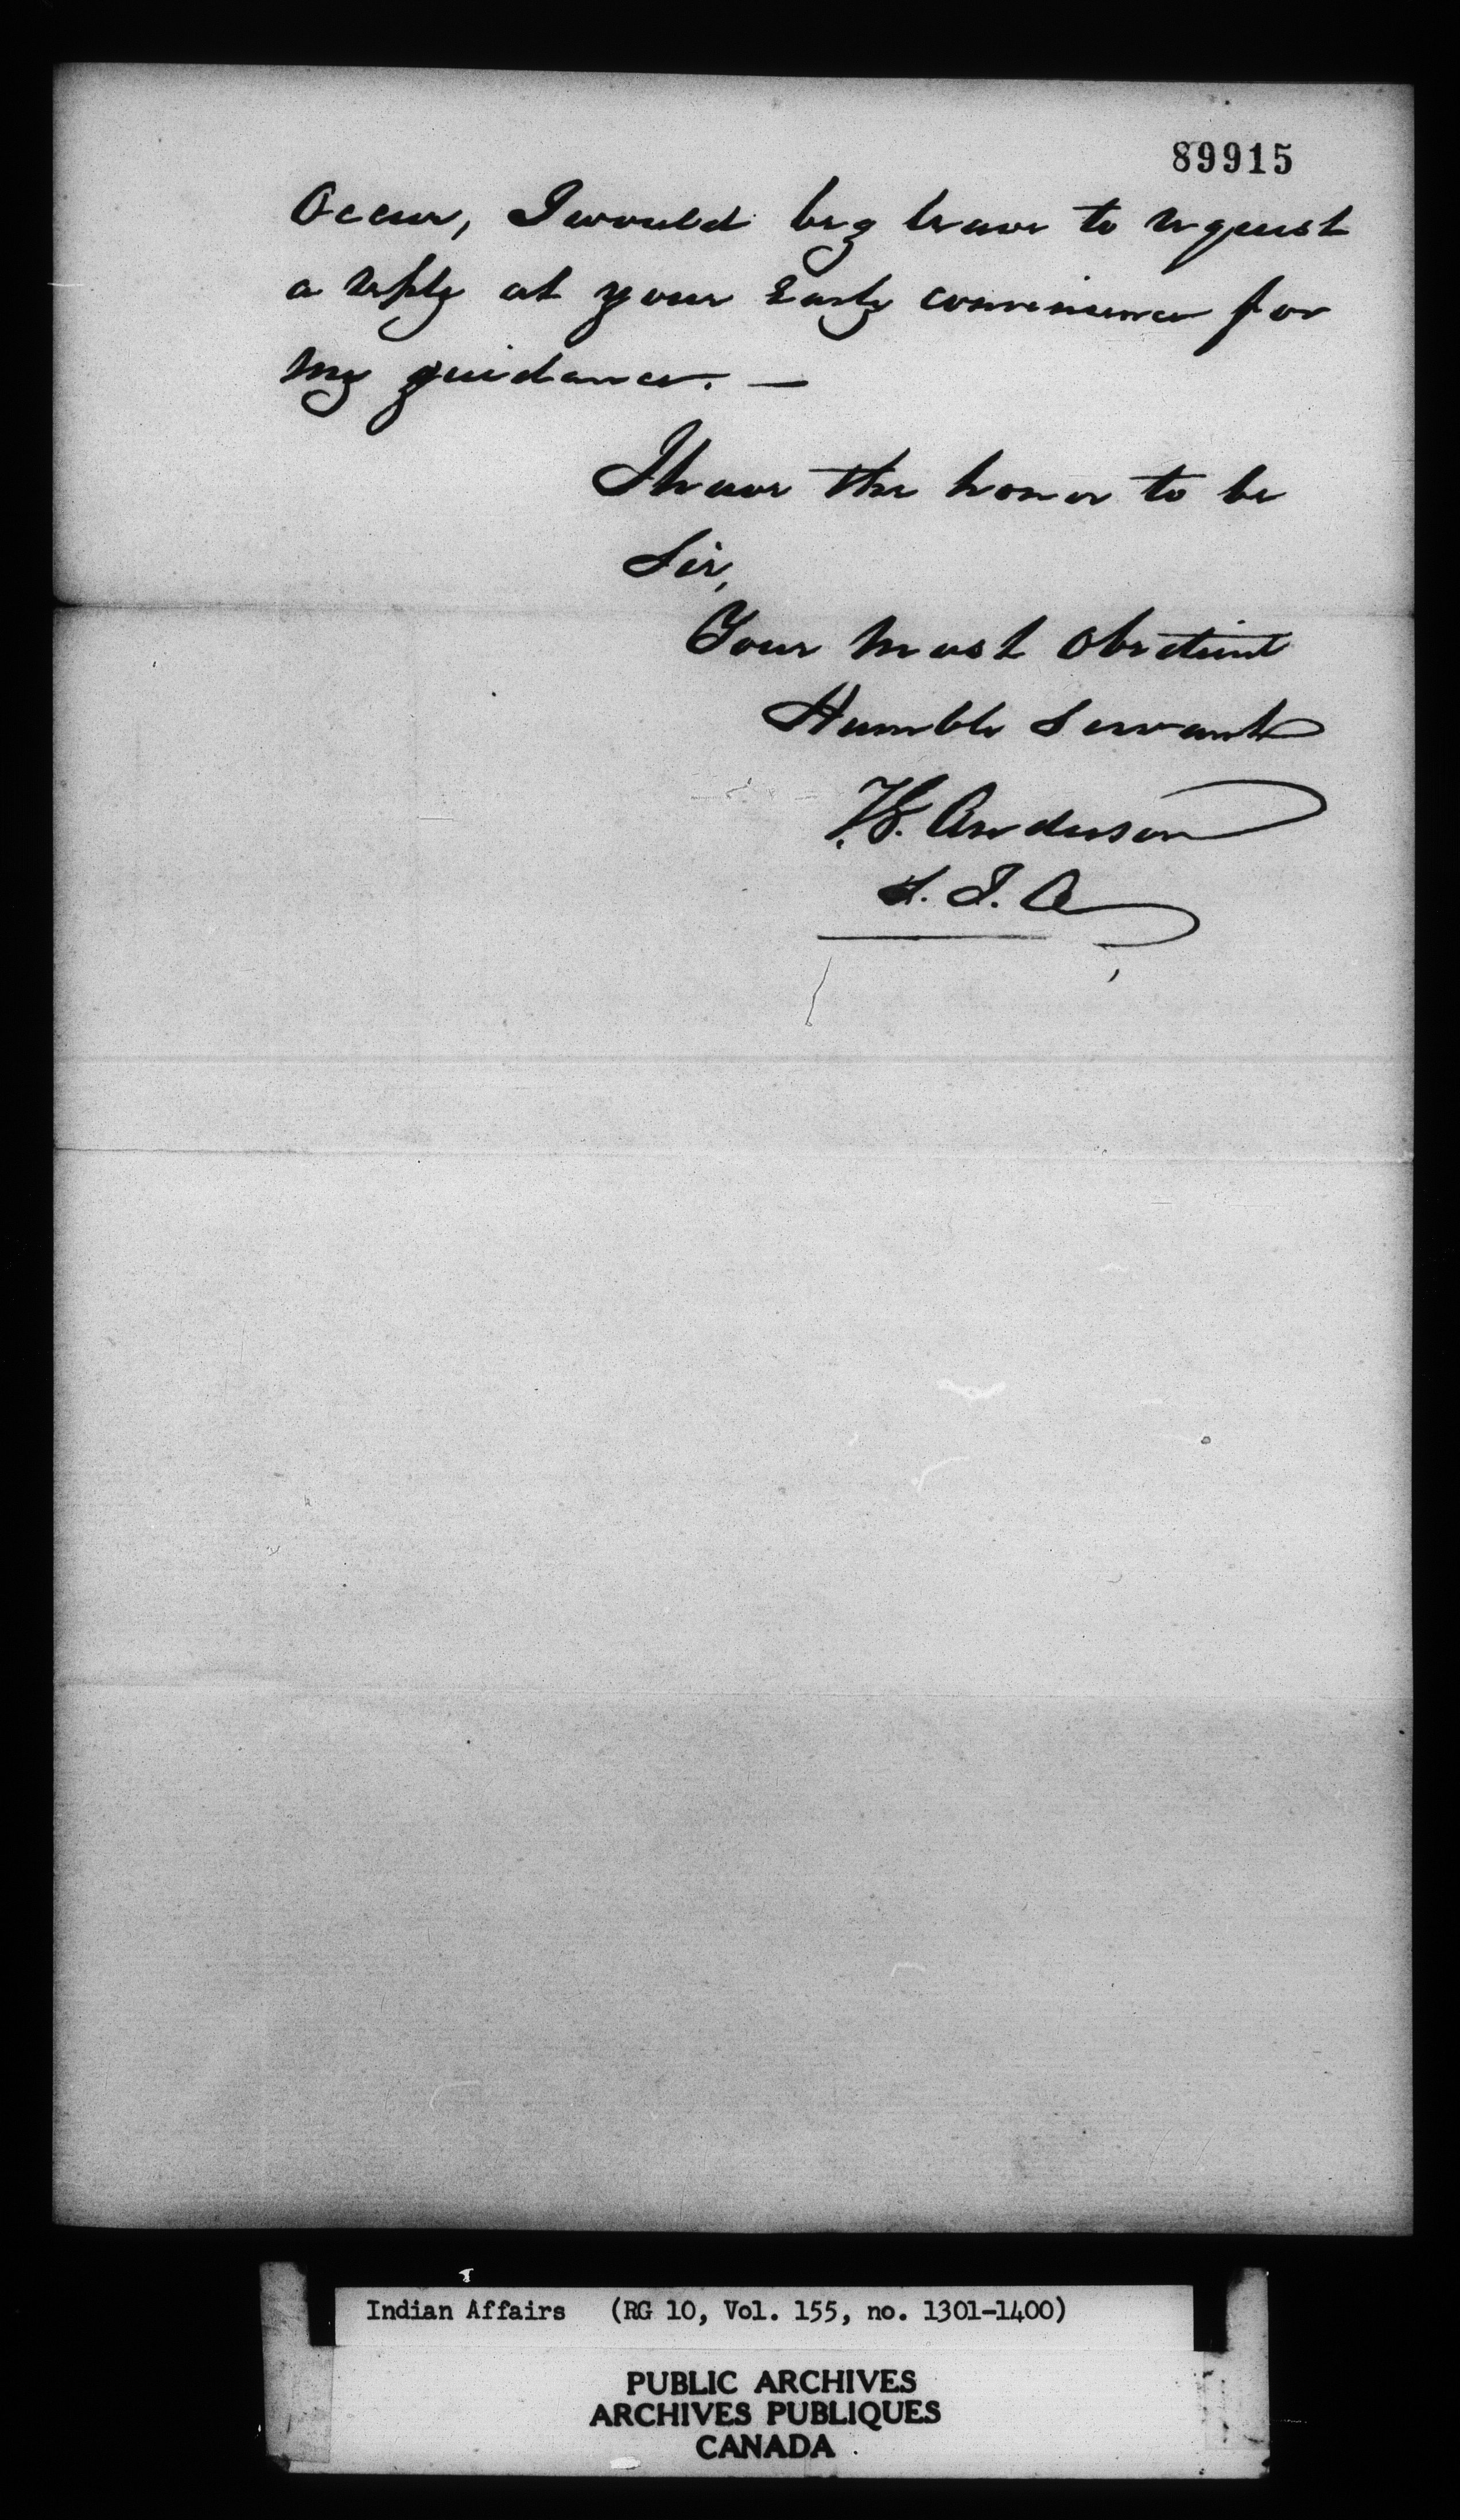 89915
Occur, I would beg leave to request
a reply at your Early convenience for
my guidance. —
I have the honor to be
Sir,
Your most obedient
Humble Servant
T.G. Anderson
S. I. A
Indian Affairs (RG 10, Vol. 155, no. 1301-1400)
PUBLIC ARCHIVES
ARCHIVES PUBLIQUES
CANADA